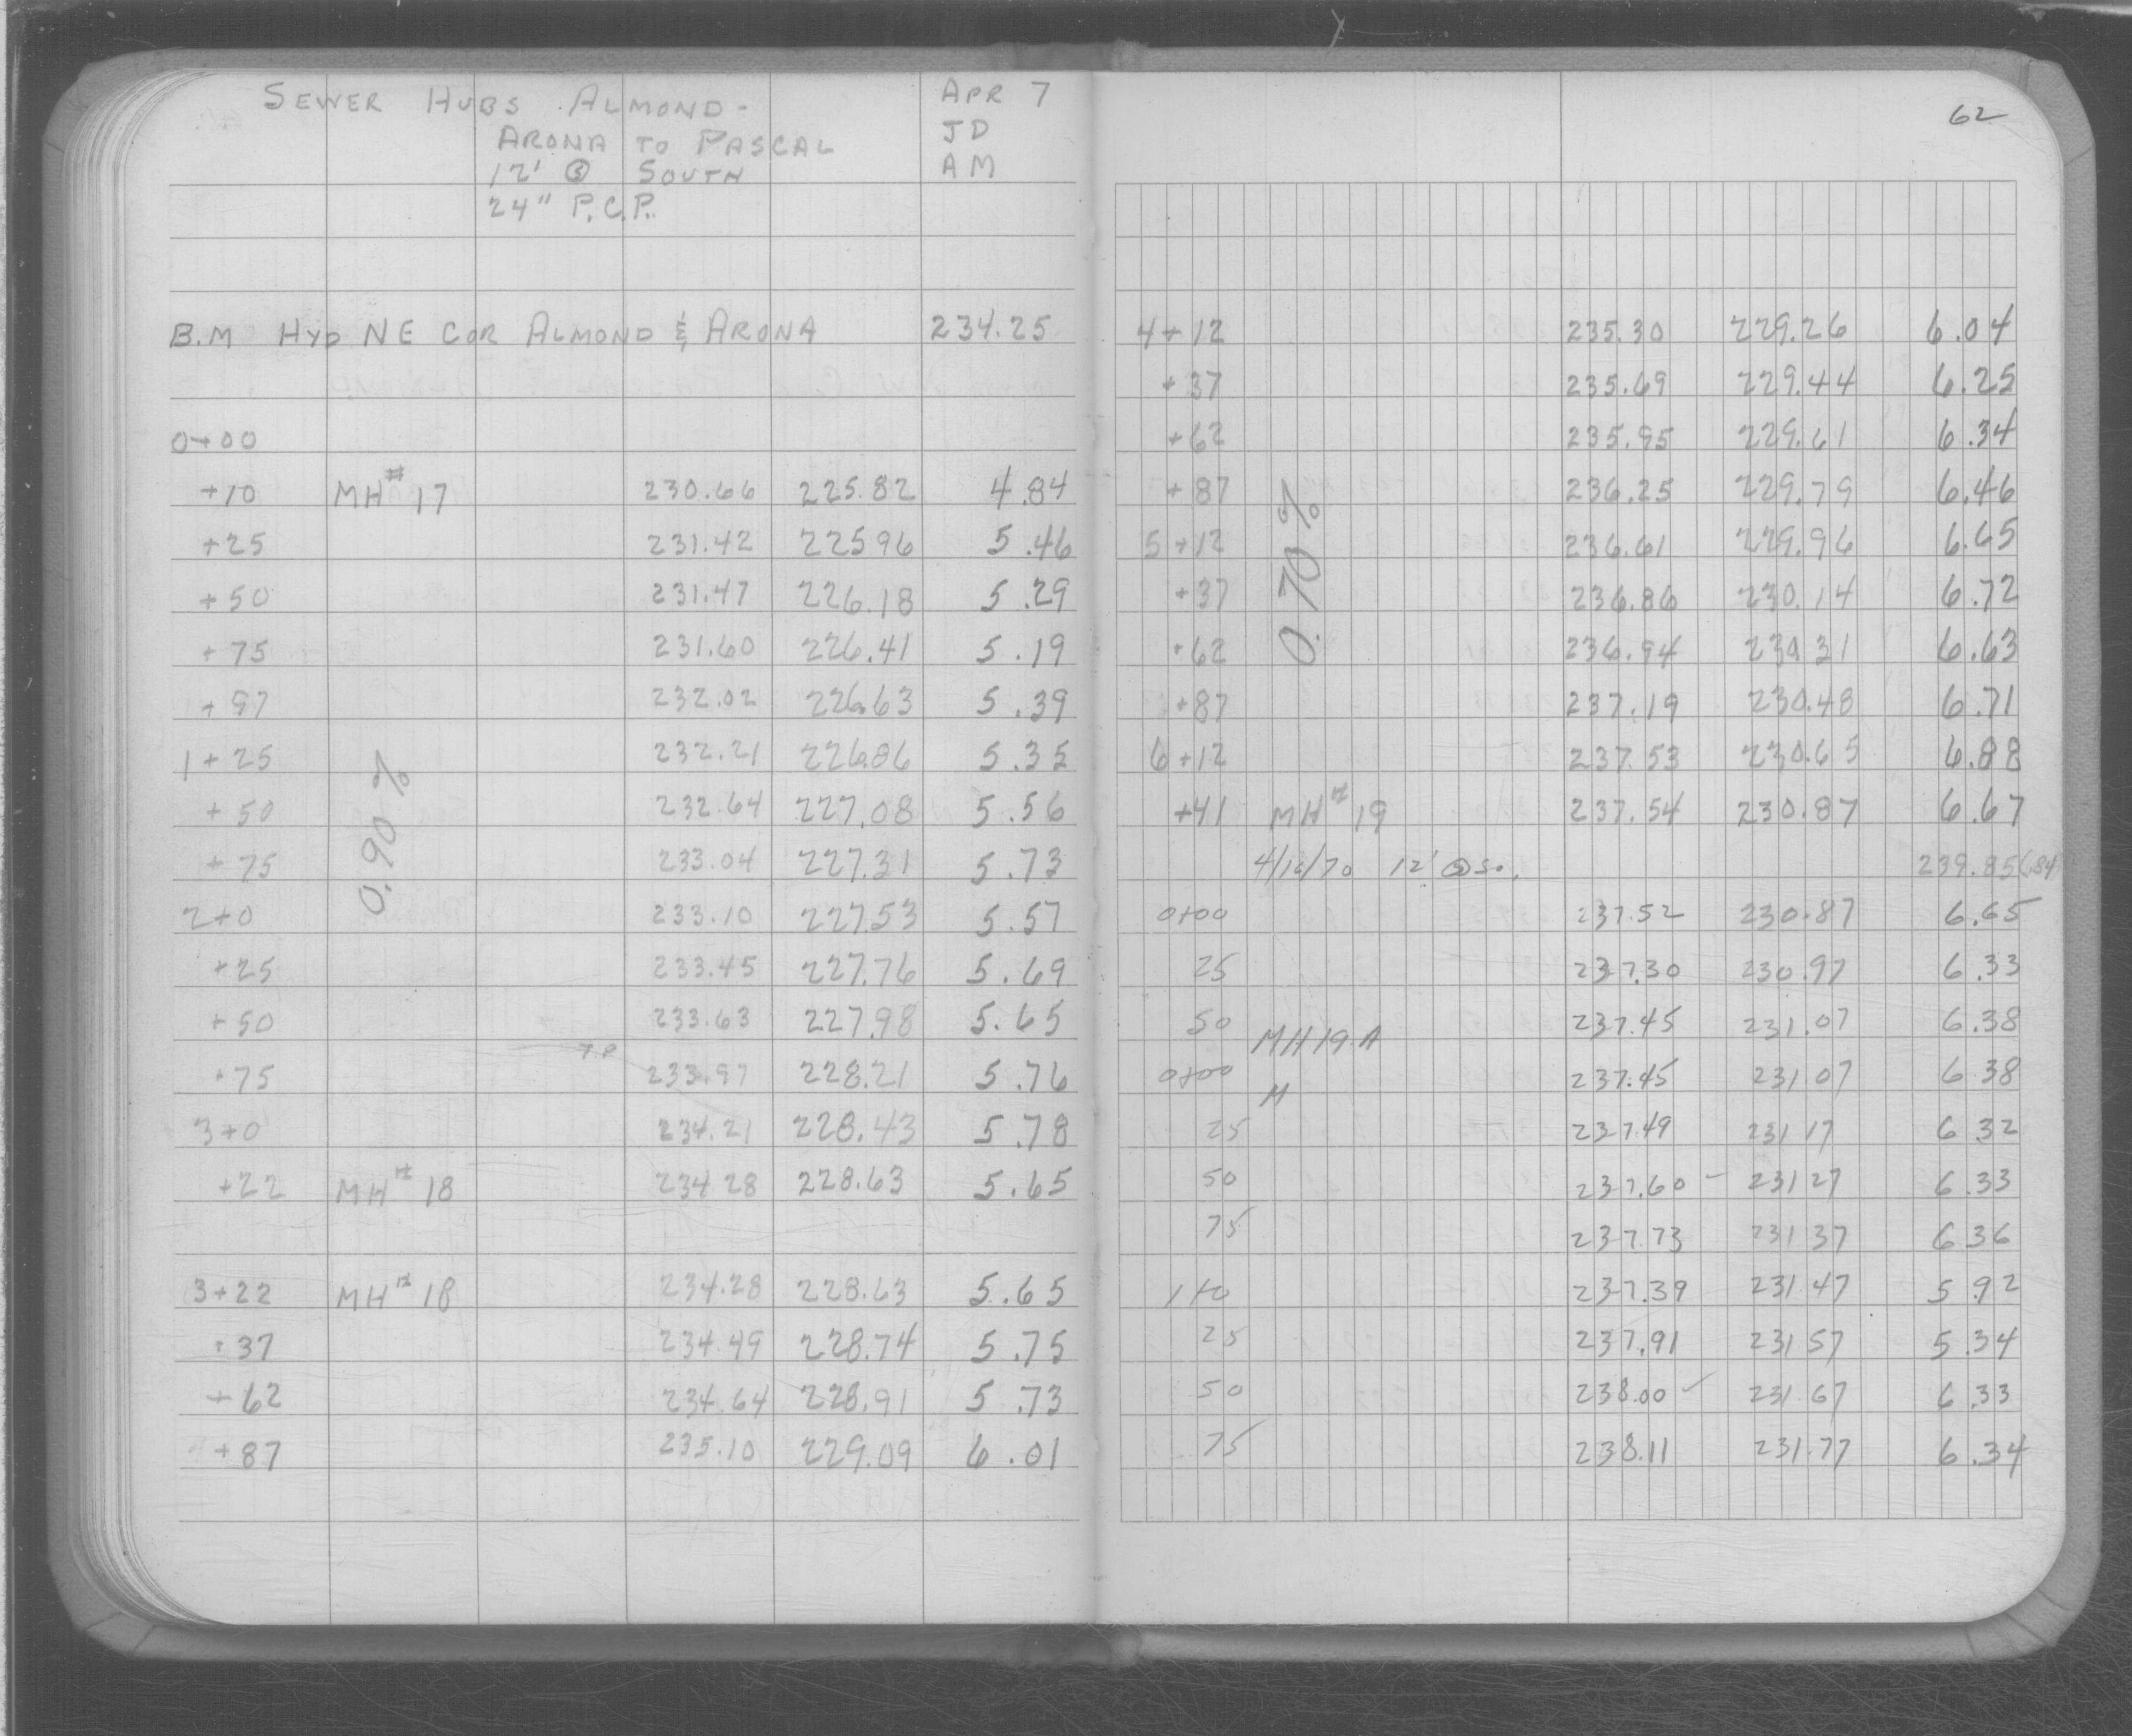 SEWER HUBS ALMOND - APR 7
ARONA TO PASCAL JD
12' @ SOUTH AM
24" P.C.P.
B.M HYD NE COR ALMOND & ARONA 234.25
0+00
+10 MH# 17 230.66 225.82 4.84
+25 231.42 225 96 5.46
+50 231.47 226.18 5.29
+75 231.60 226.41 5.19
+97 232.02 226.63 5.39
1+25 232.21 226.86 5.35
+50 232.64 227.08 5.56
+75 233.04 227.31 5.73
0.90 %
2+0 233.10 227.53 5.57
+25 233.45 227.76 5.69
+50 233.63 227.98 5.65
T.P
+75 233.97 228.21 5.76
3+0 234.21 228.43 5.78
+22 MH# 18 234 28 228.63 5.65
3+22 MH# 18 234.28 228.63 5.65
+37 234.49 228.74 5.75
+62 234.64 228.91 5.73
+87 235.10 229.09 6.01
62
4+12 235.30 229.26 6.04
+37 235.69 229.44 6.25
+62 235.95 229.61 6.34
+87 236.25 229.79 6.46
5+12 236.61 229.96 6.65
0.70 %
+37 236.86 230.14 6.72
+62 236.94 230.31 6.63
+87 237.19 230.48 6.71
6+12 237.53 230.65 6.88
+41 MH# 19 237.54 230.87 6.67
4/16/70 12' @ So. 239.85
0+00 237.52 230.87 6.65
25 237.30 230.97 6.33
50 MH 19 A 237.45 231.07 6.38
0+00 237.45 231.07 6.38
25 237.49 231 17 6 32
50 237.60 - 231 27 6.33
75 237.73 231 37 6 36
1+0 237.39 231 47 5 92
25 237.91 231 57 5.34
50 238.00 ✓ 231.67 6.33
75 238.11 231.77 6.34